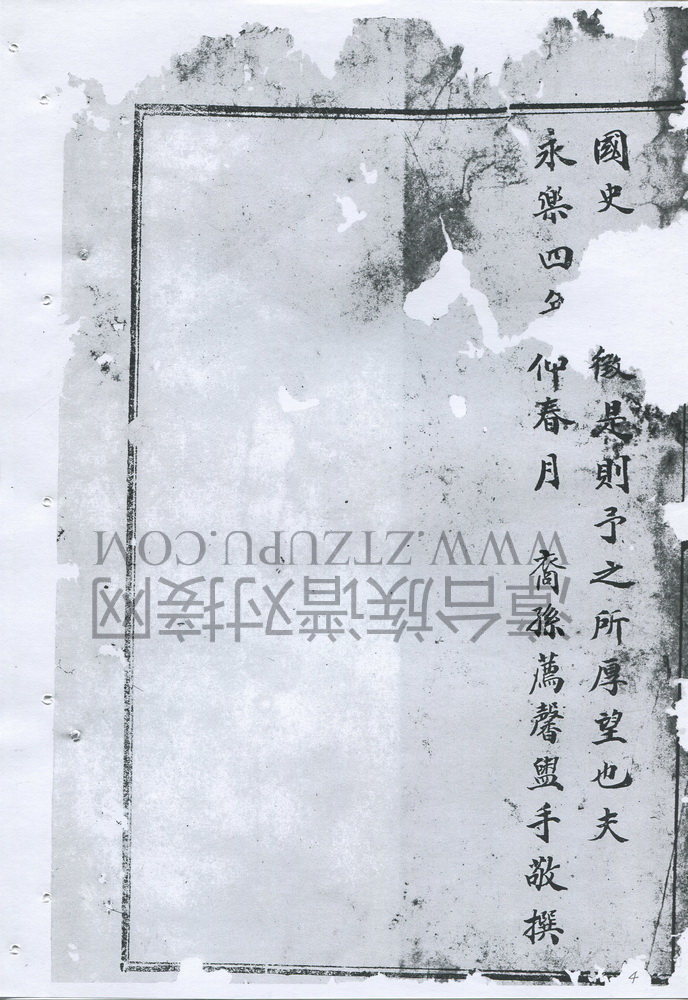 國史 徵是則予之所厚望也夫
永樂四年 仲春月 裔孫薦馨盥手敬撰
漳台族谱对接网
WWW.ZTZUPU.COM
4